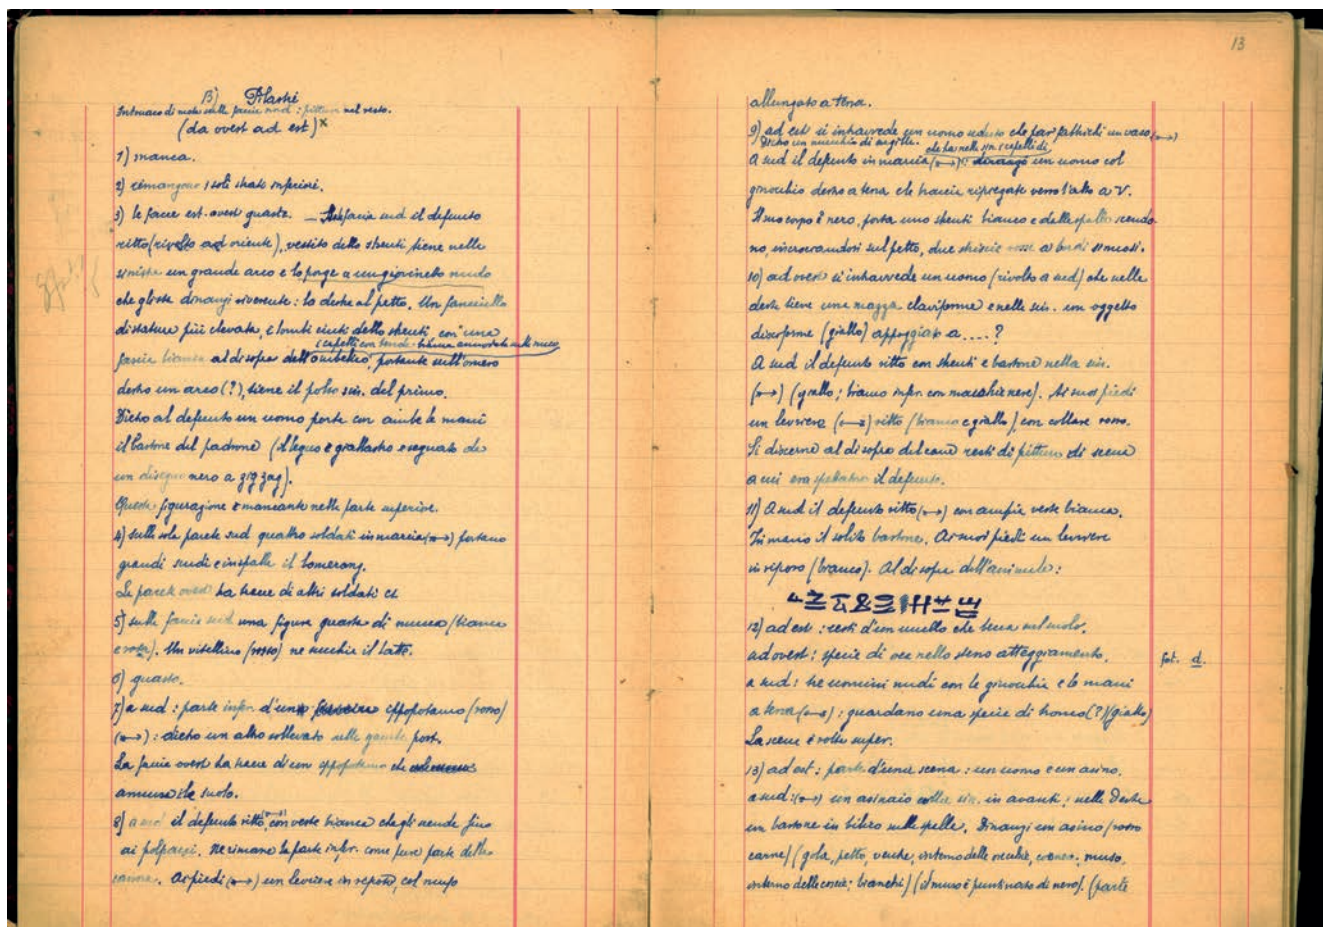 B) Pilastri
Intonaco di mota sulle faccie nord : pittura nel resto.
(da ovest ad est) x
1) manca.
2) rimangono i soli strati inferiori.
3) le facce est-ovest guaste. — faccia sud il defunto
ritto (rivolto ad oriente), vestito dello shenti tiene nella
sinistra un grande arco e lo porge a un giovinetto nudo
che gli sta dinanzi riverente : la destra al petto. Un fanciullo
di statura più elevata, e lombi cinti dello shenti, con una
i capelli con benda bianca annodata sulla nuca
fascia bianca al disopra dell'ombelico, portante sull'omero
destro un arco (?), tiene il polso sin. del primo.
Dietro al defunto un uomo porta con ambe le mani
il bastone del padrone (il legno è giallastro e segnato da
un disegno nero a zig zag).
Questa figurazione è mancante nella parte superiore.
4) sulla sola parete sud quattro soldati in marcia (→) portano
grandi scudi e in spalla il bomerang.
La parete ovest ha tracce di altri soldati
5) sulla faccia sud una figura guasta di mucca (bianca
e rossa). Un vitellino (rosso) ne succhia il latte.
6) guasto.
7) a sud : parte infer. d'un ippopotamo (rosso)
(→) : dietro un altro sollevato sulle gambe post.
La faccia ovest ha tracce d'un ippopotamo che
annusa il suolo.
8) a sud il defunto ritto (→) con veste bianca che gli scende fino
ai polpacci. Ne rimane la parte infer. come pure parte della
Ai piedi (→) un levriere in riposo, col muso
13
allungato a terra.
9) ad est si intravvede un uomo seduto che par fabbrichi un vaso (→)
Dietro un mucchio di argilla. che ha nella sin. i capelli di
A sud il defunto in marcia (→) : dinanzi un uomo col
ginocchio destro a terra che braccia ripiegate verso l'alto a V.
Il suo corpo è nero, porta uno shenti bianco e dalle spalle scendo-
no, incrociandosi sul petto, due striscie rosse ai bordi sinuosi.
10) ad ovest si intravvede un uomo (rivolto a sud) che nella
destra tiene una mazza claviforme e nella sin. un oggetto
disciforme (giallo) appoggiato a ....?
A sud il defunto ritto con shenti e bastone nella sin.
(→) (giallo ; bianco infer. con macchie nere). Ai suoi piedi
un levriere (→) ritto (bianco e giallo), con collare rosso.
Si discerne al di sopra del cane resti di pitture di scena
a cui era spettatore il defunto.
11) A sud il defunto ritto (→) con ampia veste bianca.
In mano il solito bastone. Ai suoi piedi un levriere
in riposo (bianco). Al di sopra dell'animale :
12) ad est : resti d'un uccello che becca nel suolo.
ad ovest : specie di oca nello stesso atteggiamento. fot. d.
a sud : tre uomini nudi con le ginocchia e le mani
a terra (→) : guardano una specie di tronco (?) (giallo)
La scena è rotta super.
13) ad est : parte d'una scena : un uomo e un asino.
a sud : (→) un asinaio colla sin. in avanti ; nella destra
un bastone in bilico sulle spalle. Dinanzi un asino (rosso
carne) (gola, petto, ventre, interno delle orecchie, muso,
interno delle coscie ; bianchi) (il muso è puntinato di nero). (parte